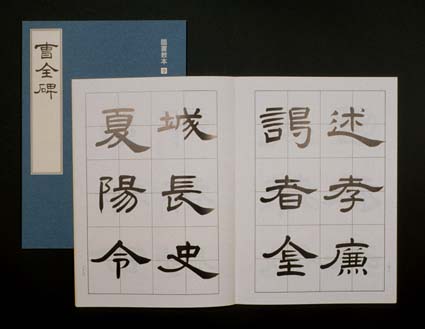 曹全碑
臨書教本
述孝廉
謁者金
城長史
夏陽令